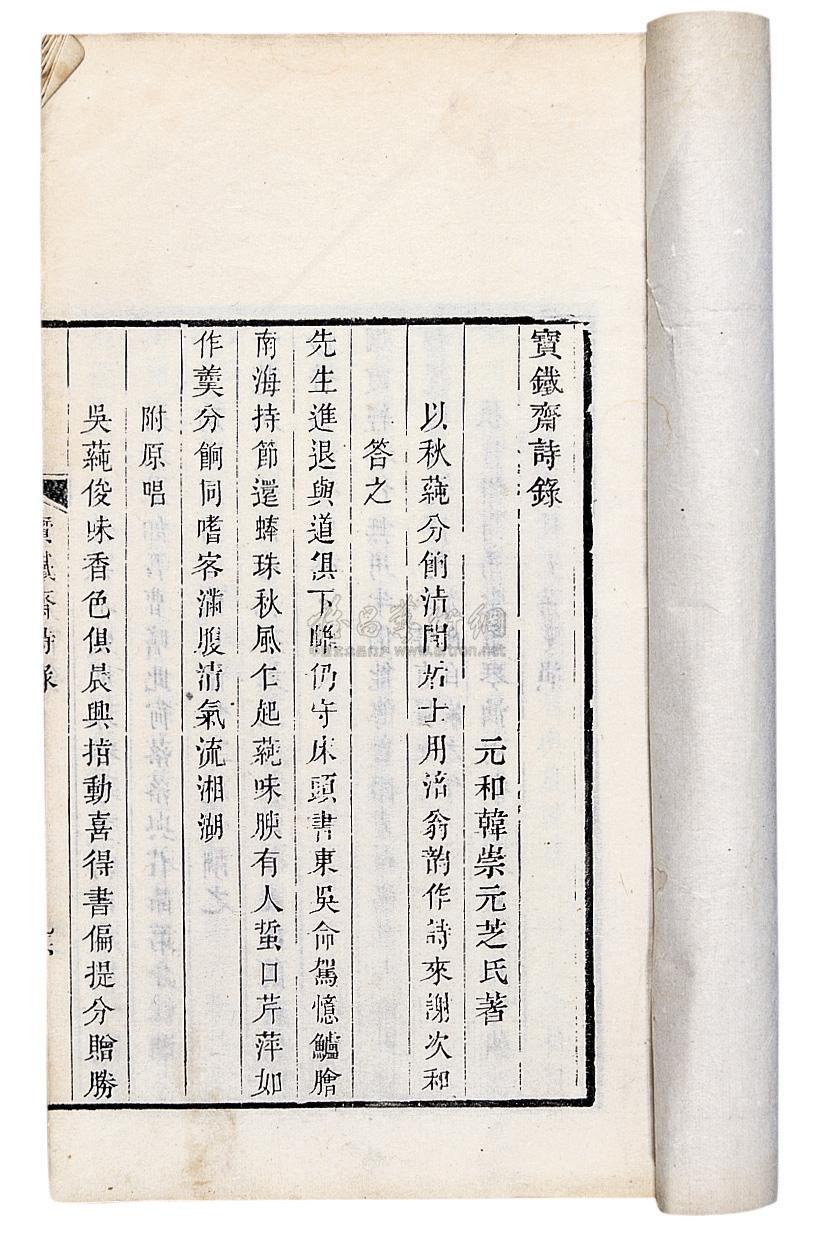 寶鐵齋詩錄
元和韓崇元芝氏著
以秋蒓分餉沽閒居士用涪翁韵作詩來謝次和
答之
先生進退與道俱下簾仍守床頭書東吳命駕憶鱸膾
南海持節還蜯珠秋風乍起蒓味腴有人蜇口芹萍如
作羹分餉同嗜客滿腹清氣流湘湖
附原唱
吳蒓俊味香色俱晨興指動喜得書偏提分贈勝
寶鐵齋詩錄